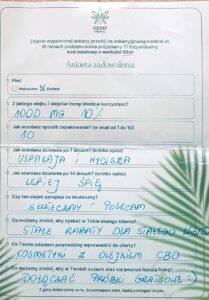 HEMP
MEDICAL
Zdjęcie wypełnionej ankiety prześlij na ankiety@hempmedical.pl
W ramach podziękowania przyznamy Ci indywidualny
kod rabatowy o wartości 55zł!
Ankieta zadowolenia
Płeć
Mężczyzna Kobieta
Z jakiego olejku / olejków Hemp Medical korzystasz?
1000 MG 10%
Jak oceniasz sposób zapakowania? (w skali od 1 do 10)
10
Jak oceniasz działanie po 7 dniach? (krótki opis)
USPAKAJA I WYCISZA
Jak oceniasz działanie po 14 dniach? (krótki opis)
LEPIEJ ŚPIĘ
Czy ten olejek uznajesz za skuteczny?
SKUTECZNY - POLECAM
Co możemy zrobić, aby zyskać w Tobie stałego klienta?
STAŁE RABATY DLA STAŁEGO KLIENTA
Co Twoim zdaniem powinniśmy wprowadzić do oferty?
KOSMETYKI Z OLEJKIEM CBD
Co możemy zrobić, aby w Twoich oczach stać się jeszcze lepszą firmą?
DOŁĄCZAĆ PRÓBKI GRATISOWE :)